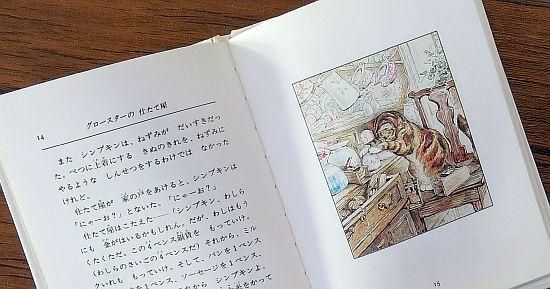 14
グロースターの 仕たて屋
また シンプキンは、ねずみが だいすきだっ
た。べつに上着にする きぬのきれを、ねずみに
やるような しんせつをするわけでは なかった
けれど。
仕たて屋が 家の戸をあけると、シンプキンは
「にゃーお?」とないた。「にゃーお?」
仕たて屋はこたえた――「シンプキン、わしら
にも 金がはいるかもしれん。だが、わしはもう
くたくただ。この4ペンス銀貨を もっていけ。
(わしらのさいごの4ペンスだ)それから、ミル
クいれも もっていけ。そして、パンを1ペンス、
ミルクを1ペンス、ソーセージを1ペンス、
それから シンプキンよ、
をかって
15